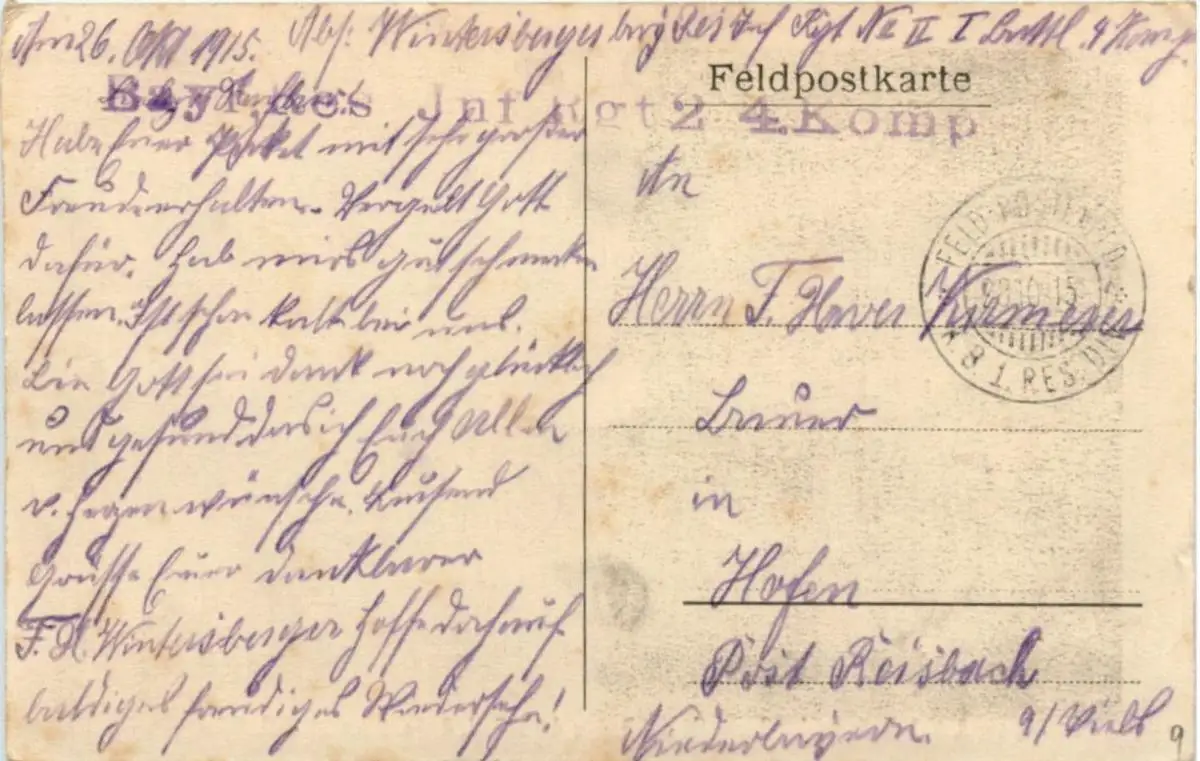 Am 26. Okt 1915.
Abs: Wintersberger bay Res Inf Rgt No II I Battl. 4 Komp.
Bay Res Inf Rgt 2 4. Komp
Feldpostkarte
Habe Euer Paket mit sehr großer
Freude erhalten. Vergelt Gott
dafür. Hab mirs gut schmecken
lassen. Ist schon kalt bei uns.
Bin Gott sei dank noch glücklich
und gesund das ich Euch allen
v. Herzen wünsche. Tausend
Grüsse Euer dankbarer
F. X. Wintersberger Hoffe doch auf
baldiges freudiges Wiedersehn!
An
Herrn F. Xaver
Bauer
in
Hofen
Post Reisbach
Niederbayern.
a/ Vils
9
FELD-POSTEXP. D.
28.10.15
* B 1. RES. DIV. *